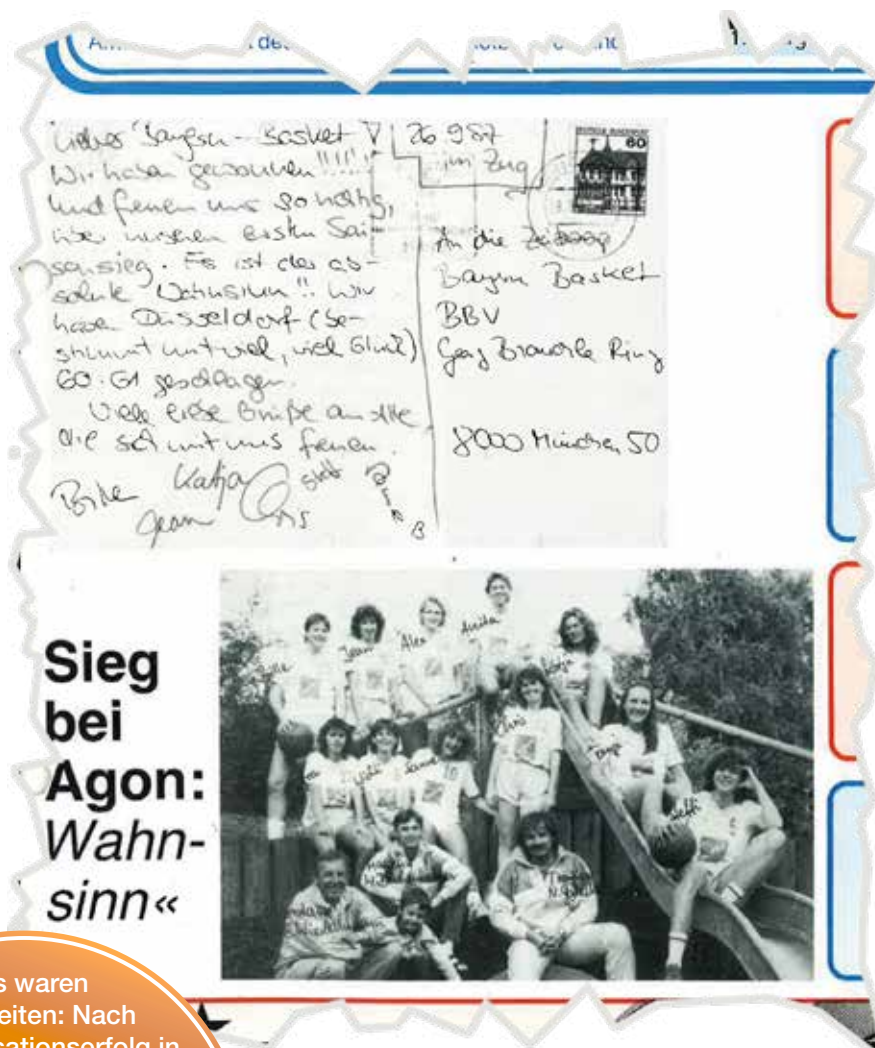 Lieber Bayern-Basket
Wir haben gewonnen!!!!!
und freuen uns so richtig,
über unseren ersten Sai-
sonsieg. Es ist der ab-
solute Wahnsinn!! Wir
haben Düsseldorf (be-
stimmt mit viel, viel Glück)
60:61 geschlagen.
Viele liebe Grüße an alle
die sich mit uns freuen.
Katja
Jean
Steffi
26 9 87
im Zug
60
An die Zeitung
Bayern Basket
BBV
Georg Brauchle Ring
8000 München 50
Sieg
bei
Agon:
Wahn-
sinn«
Jean
Alex
Anita
Katja
Chris
Tanja
Steffi
s waren
eiten: Nach
sationserfolg in